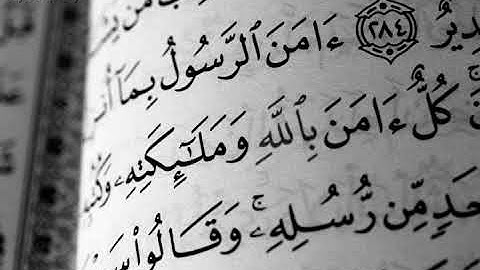 مَن يَشَ
دِيرٌ ٢٨٤ ءَامَنَ ٱلرَّسُولُ بِمَآ أُن
كُلٌّ ءَامَنَ بِٱللَّهِ وَمَلَـٰٓئِكَتِهِۦ وَكُتُبِ
حَدٍ مِّن رُّسُلِهِۦ ۚ وَقَالُوا۟ سَ